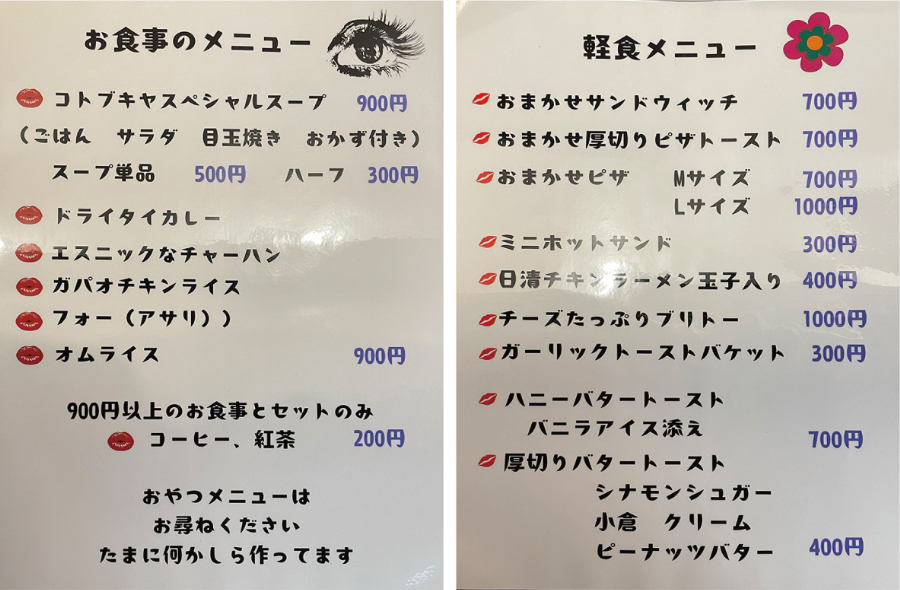 お食事のメニュー
コトブキヤスペシャルスープ 900円
(ごはん サラダ 目玉焼き おかず付き)
スープ単品 500円 ハーフ 300円
ドライタイカレー
エスニックなチャーハン
ガパオチキンライス
フォー(アサリ))
オムライス 900円
900円以上のお食事とセットのみ
コーヒー、紅茶 200円
おやつメニューは
お尋ねください
たまに何かしら作ってます
軽食メニュー
おまかせサンドウィッチ 700円
おまかせ厚切りピザトースト 700円
おまかせピザ Mサイズ 700円
Lサイズ 1000円
ミニホットサンド 300円
日清チキンラーメン玉子入り 400円
チーズたっぷりブリトー 1000円
ガーリックトーストバケット 300円
ハニーバタートースト
バニラアイス添え 700円
厚切りバタートースト
シナモンシュガー
小倉 クリーム
ピーナッツバター 400円